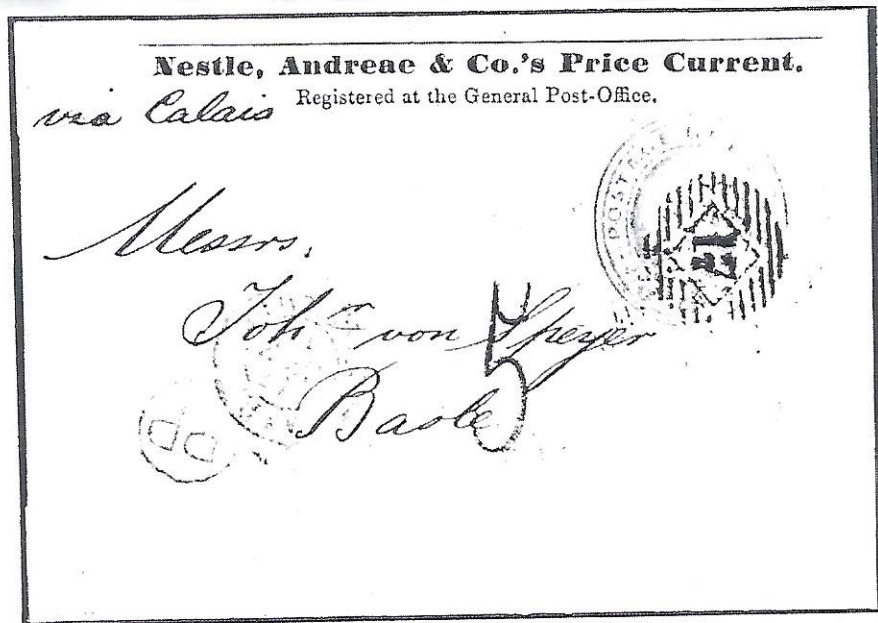 Nestle, Andreae & Co.'s Price Current.
Registered at the General Post-Office.
via Calais
POSTAGE
17
Messrs.
Joh.ˢ von Speyer
5
Basle
PD